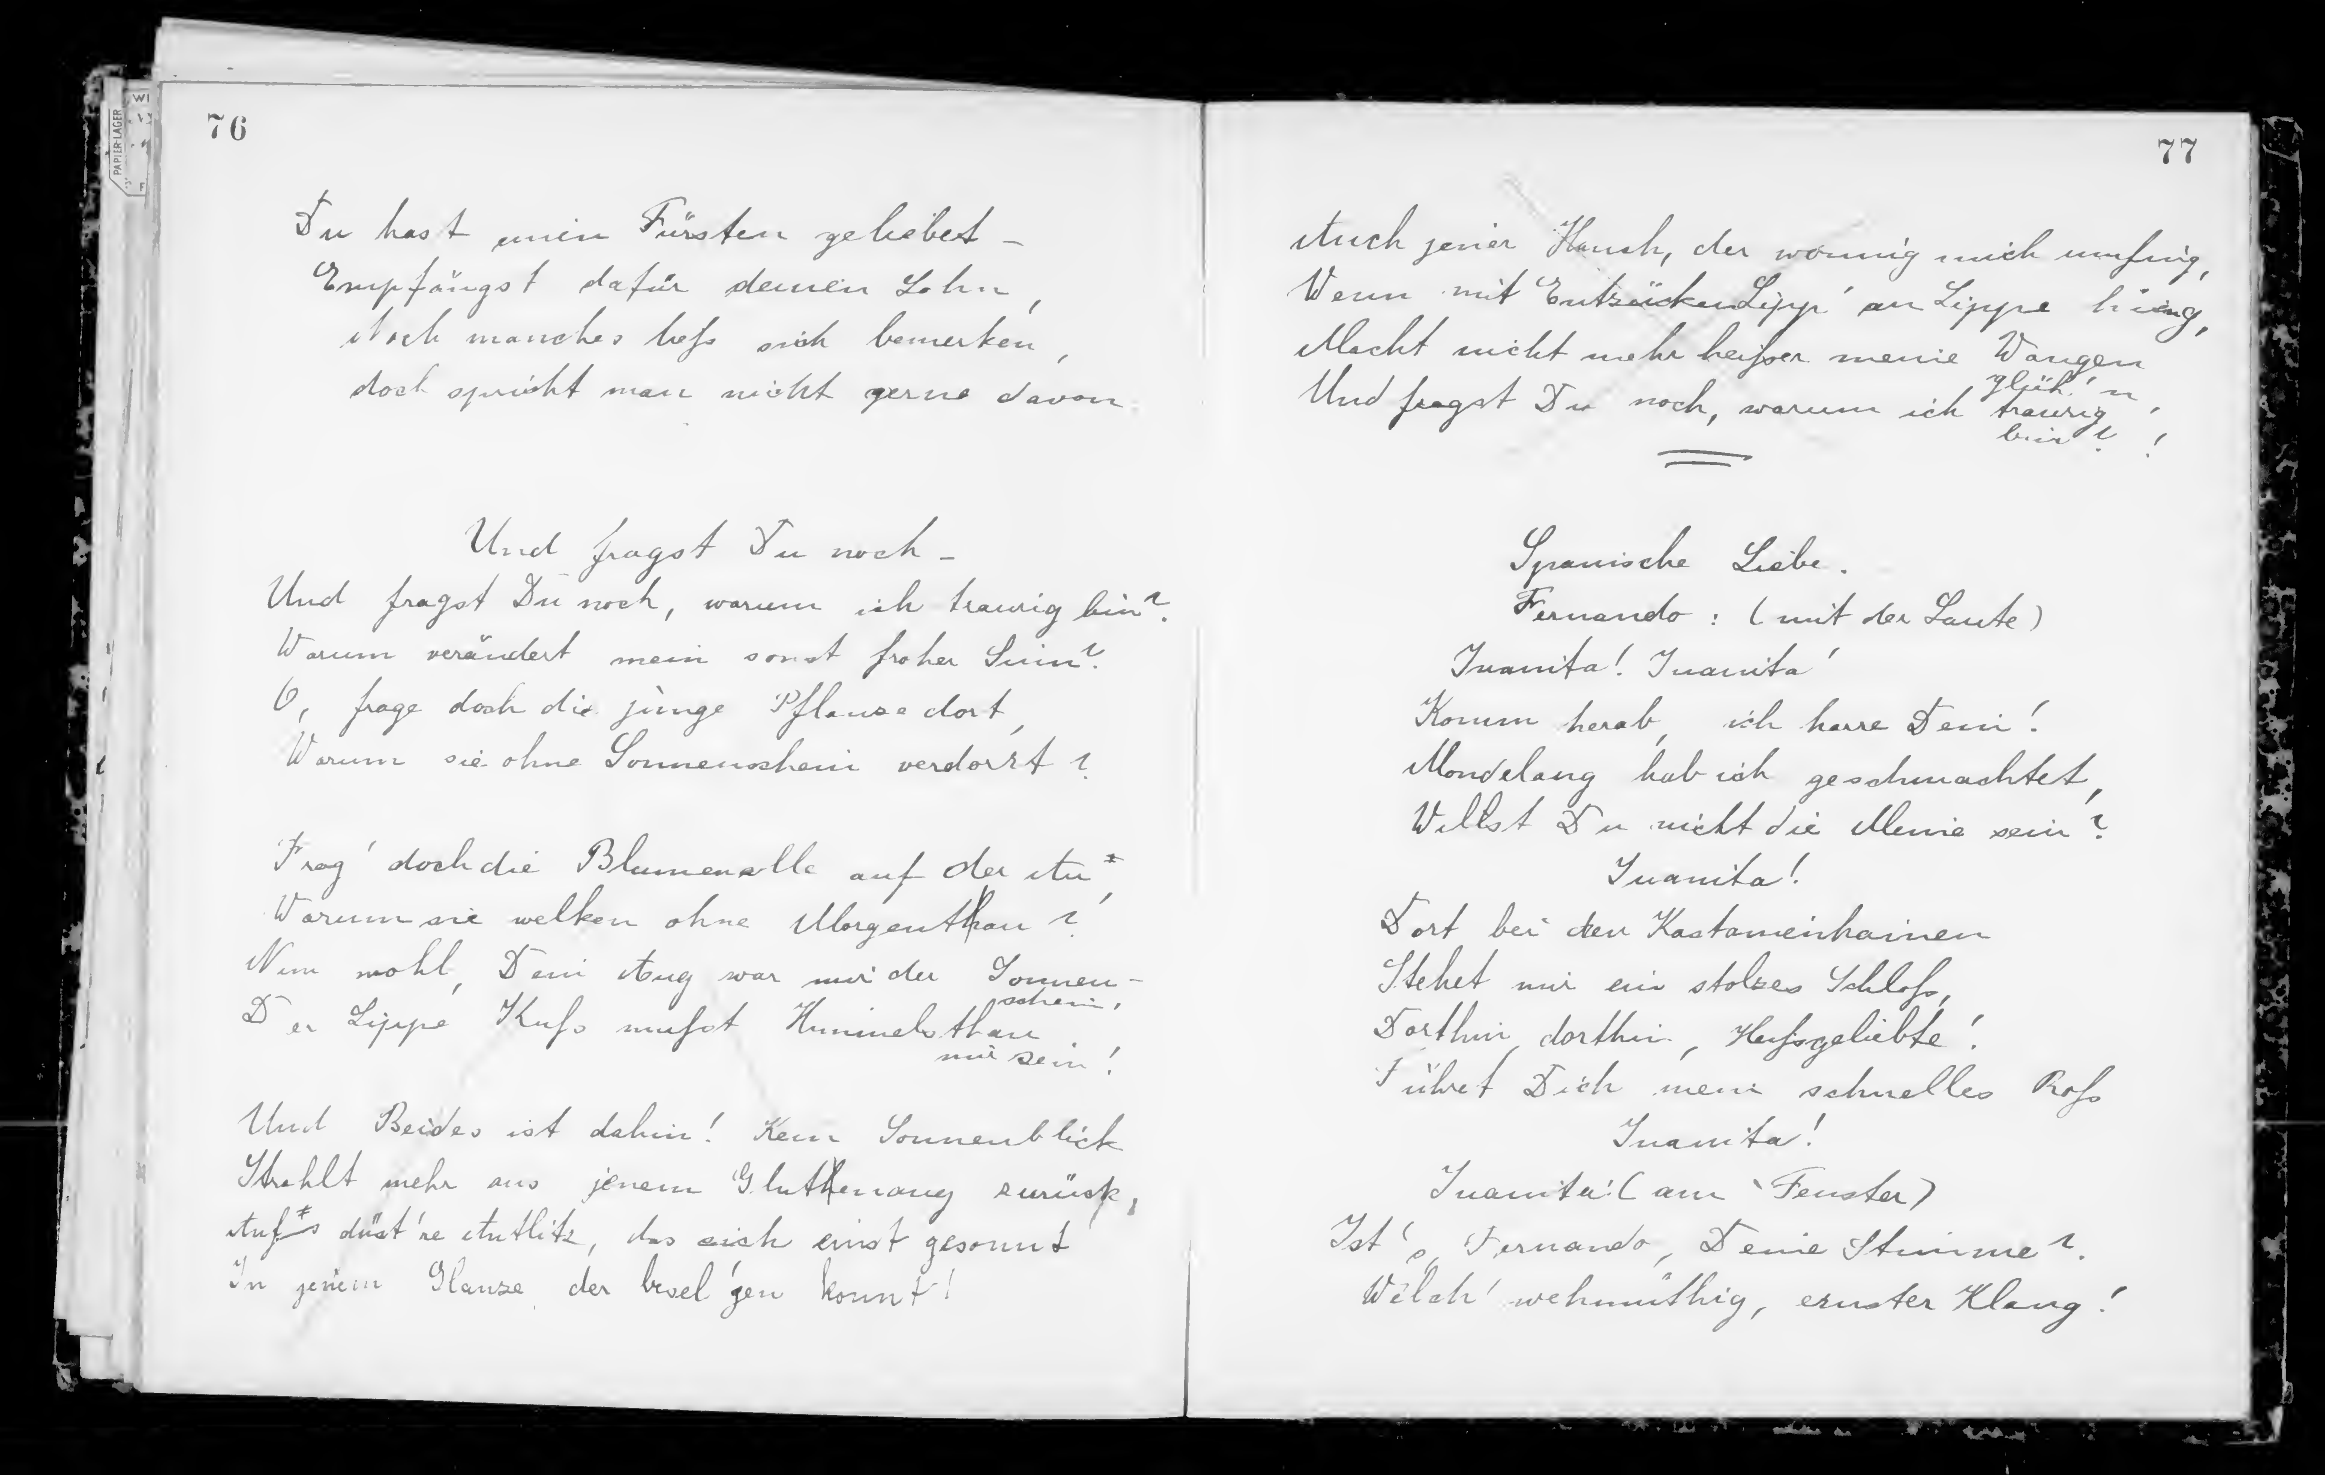 76
Du hast einen Fürsten geliebet –
Empfängst dafür deinen Lohn,
Noch manches liess sich bemerken,
doch spricht man nicht gerne davon
Und fragst Du noch –
Und fragst Du noch, warum ich traurig bin?
Warum verändert mein sonst froher Sinn?
O, frage doch die junge Pflanze dort,
Warum sie ohne Sonnenschein verdorrt?
Frag' doch die Blumen alle auf der Au,
Warum sie welken ohne Morgenthau?
Nun wohl, Dein Aug war mir der Sonnen-
schein,
Der Lippe Kuss musst Himmelsthau
mir sein!
Und Beides ist dahin! Kein Sonnenblick
Strahlt mehr aus jenem Gluthenaug zurück,
Auf's düst're Antlitz, das sich einst gesonnt
In jenem Glanze der besel'gen konnt!
77
Auch jener Hauch, der wonnig mich umfing,
Wenn mit Entzücken Lipp' an Lippe hieng,
Macht nicht mehr heisser meine Wangen
glüh'n,
Und fragst Du noch, warum ich traurig
bin?!
Spanische Liebe.
Fernando: (mit der Laute)
Juanita! Juanita!
Komm herab, ich harre Dein!
Mondelang hab ich geschmachtet,
Willst Du nicht die Meine sein?
Juanita!
Dort bei den Kastanienhainen
Stehet mir ein stolzes Schloss,
Dorthin, dorthin, Heissgeliebte!
Führet Dich mein schnelles Ross
Juanita!
Juanita: (am Fenster)
Ist's, Fernando, Deine Stimme?
Welch' wehmüthig, ernster Klang!